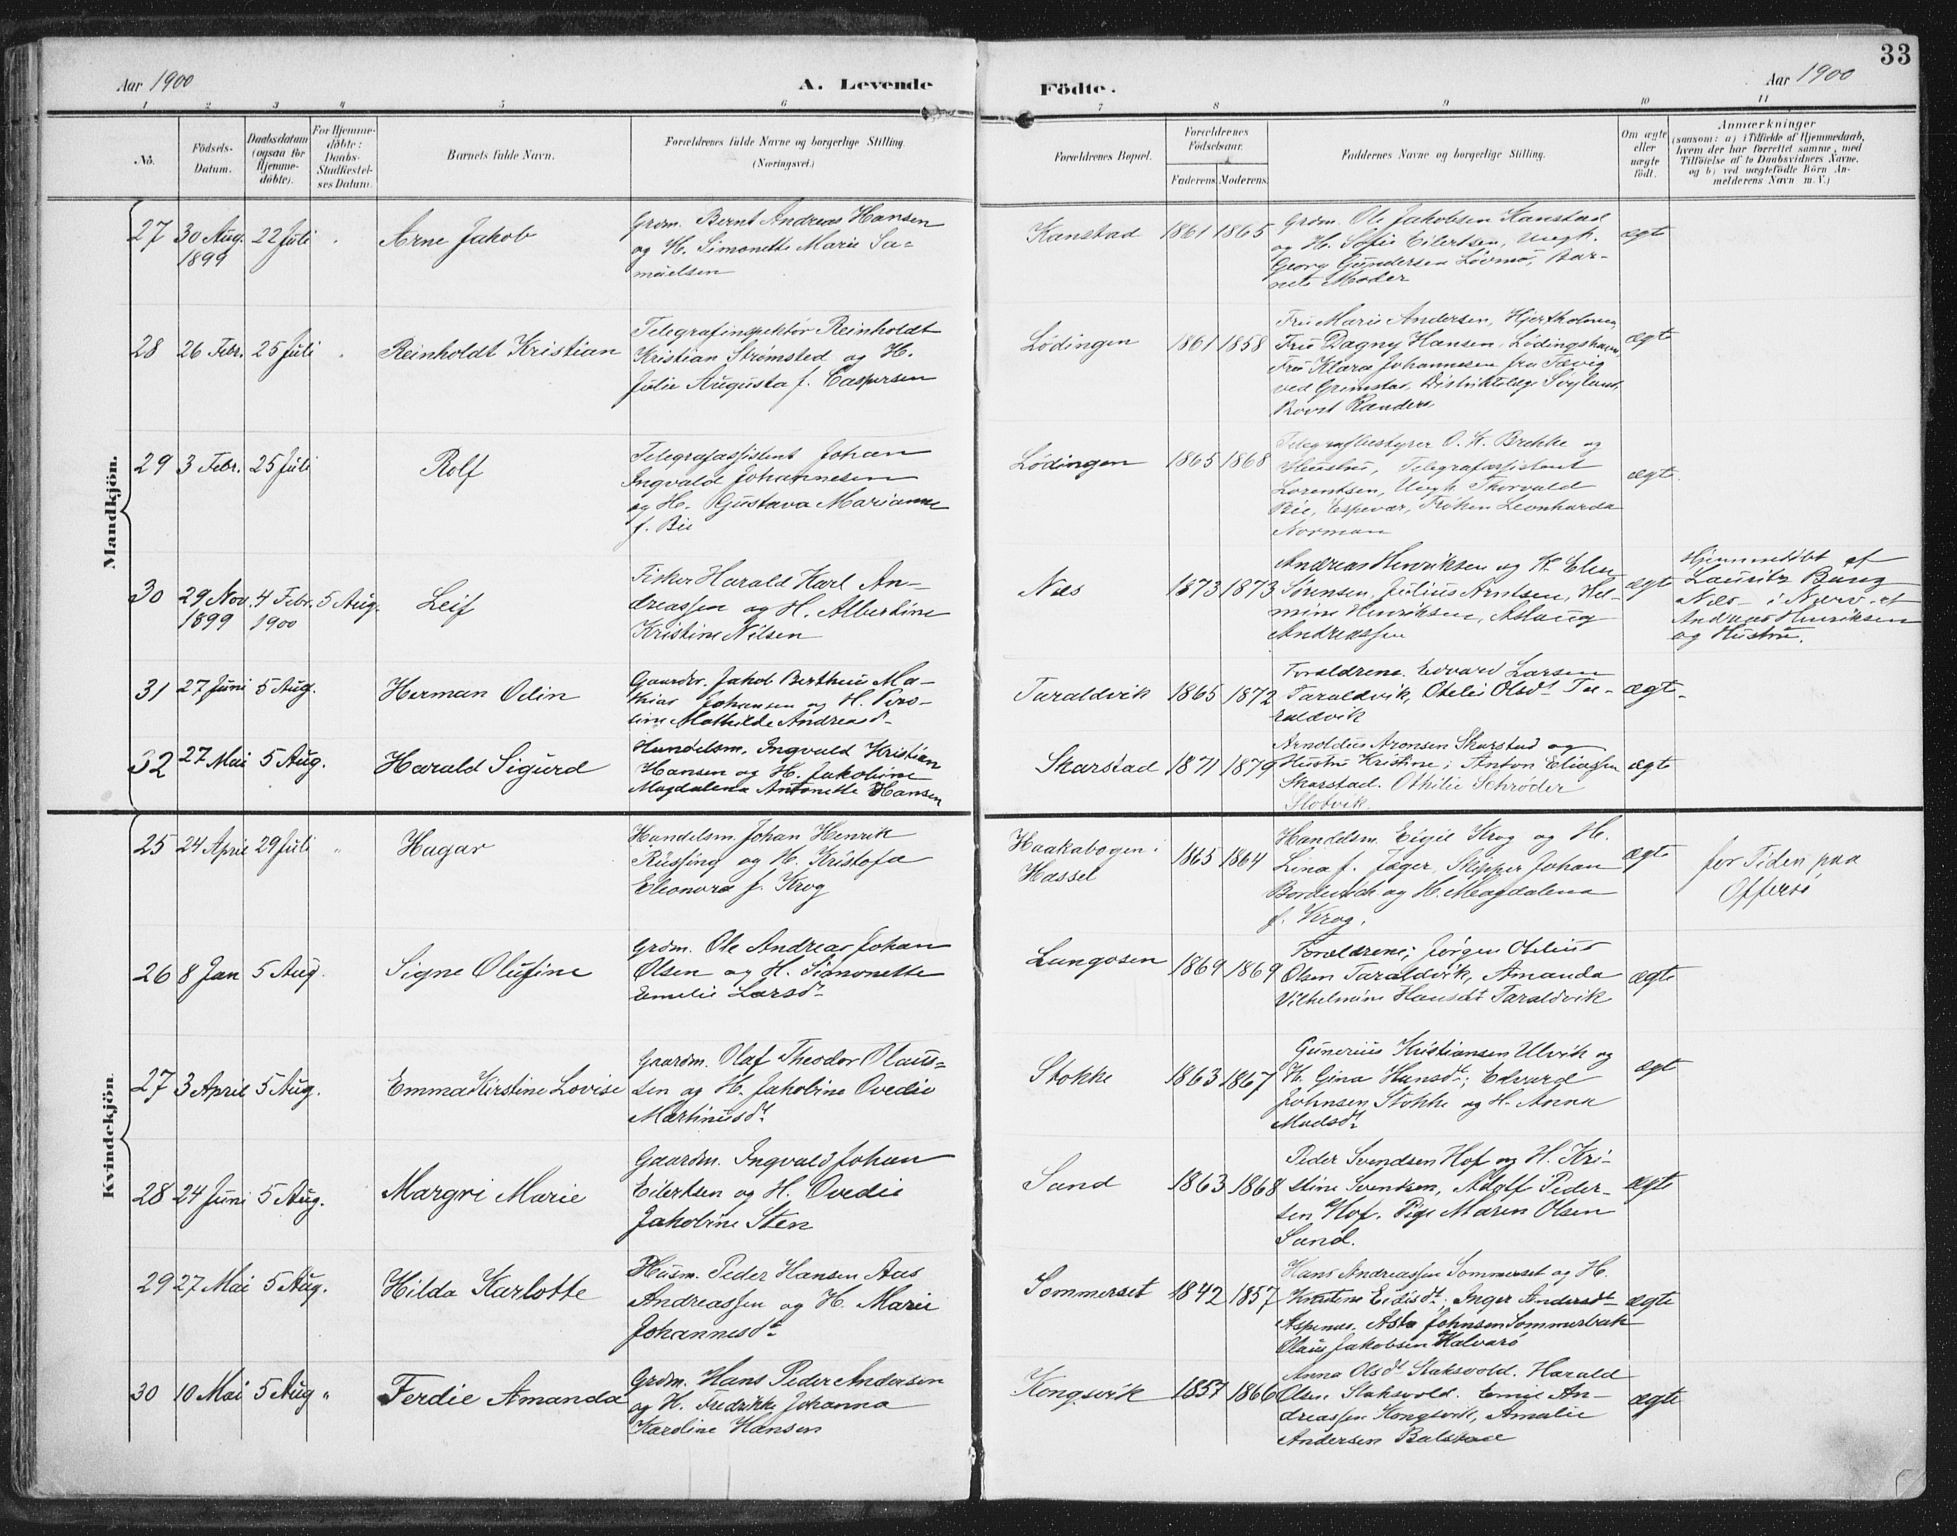 33
Aar 1900
A. Levende
Födte.
Aar 1900
1 2 3 4 5 6 7 8 9 10 11
No.
Födsels-
Datum.
Daabsdatum
(ogsaa for
Hjemme-
döbte).
For Hjemme-
döbte:
Daabs-
Stadfæstel-
ses Datum.
Barnets fulde Navn.
Forældrenes fulde Navne og borgerlige Stilling.
(Næringsvei.)
Forældrenes Bopæl.
Forældrenes
Födselsaar.
Faderens. Moderens.
Faddernes Navne og borgerlige Stilling.
Om ægte
eller
uægte
födt.
Anmærkninger
(saasom: a) i Tilfælde af Hjemmedaab,
hvem der har forrettet samme, med
Tilföielse af to Daabsvidners Navne,
og b) ved uægtefödte Börn An-
melderens Navn m. V.)
Mandkjön.
27
30 Aug.
1899
22 Juli
Arne Jakob
Grdm. Bernt Andreas Hansen
og H. Simonette Marie Sa-
muelsen
Kanstad
1861
1865
Grdm. Ole Jakobsen Kanstad
og H. Sofie Eilertsen, Ungk.
Georg Gundersen Løvmo, Bar-
nets Moder
ægte
28
26 Febr.
25 Juli
Reinholdt Kristian
Telegrafinspektör Reinholdt
Kristian Strømsted og H.
Julie Augusta f. Caspersen
Lødingen
1861
1858
Fru Marie Andersen, Hjertholmen,
Fru Dagny Hansen, Lødingshavn,
Fru Klara Johannesen fra Fævig
ved Grimstad, Distriktslæge
Provst Randers
ægte
29
3 Febr.
25 Juli
Rolf
Telegrafassistent Johan
Ingvald Johannesen
og H. Gustava Marianne
f. Bie
Lødingen
1865
1868
Telegrafbestyrer O. K. Brekke og
Hustru, Telegrafassistent
Lorentsen, Ungk. Thorvald
Bie, Espevær, Fröken Leonharda
Norman
ægte
30
29 Nov.
1899
4 Febr.
1900
5 Aug.
Leif
Fisker Harald Karl An-
dreassen og H. Albertine
Kristine Nilsen
Næs
1873
1873
Andreas Henriksen og H. Elen
Sørensen, Julius Arntsen, Hel-
mine Henriksen, Aslaug
Andreassen
ægte
Hjemmedöbt af
Lauritz Bang
Næs i Nærv. af
Andreas Henriksen
og Hustru.
31
27 Juni
5 Aug.
Herman Odin
Gaardbr. Jakob Bertheus Ma-
thias Johansen og H. Petro-
line Mathilde Andreasdt
Taraldvik
1865
1872
Forældrene, Edvard Larsen
Taraldvik, Oteli Olsdt Ta-
raldvik
ægte
32
27 Mai
5 Aug.
Harald Sigurd
Handelsm. Ingvald Kristian
Hansen og H. Jakobine
Magdalena Antonette Hansen
Skarstad
1871
1879
Arnoldus Aronsen Skarstad og
Hustru Kristine; Anton Eliassen
Skarstad. Othilie Schrøder
Slotvik.
ægte
Kvindekjön.
25
24 April
29 Juli
"
Hagar
Handelsm. Johan Henrik
Rüssing og H. Kristofa
Eleonora f. Krog
Haakabogen i
Hassel
1865
1864
Handelsm. Eigil Krog og H.
Lina f. Jæger, Skipper Johan
Bordevich og H. Magdalena
f. Krog.
ægte
for Tiden paa
Offersø
26
8 Jan
5 Aug.
Signe Olufine
Grdm. Ole Andreas Johan
Olsen og H. Simonette
Emelie Larsdt
Lungosen
1869
1869
Forældrene; Jørgen Otelius
Olsen Taraldvik, Amanda
Vilhelmine Hansdt Taraldvik
ægte
27
3 April
5 Aug.
Emma Kirstine Lovise
Gaardm. Olaf Theodor Olaus-
sen og H. Jakobine Ovedie
Martinusdt
Stokke
1863
1867
Gunerius Kristiansen Ulvik og
H. Gina Hansdt; Edvard
Johnsen Stokke og H. Anna
Madsdt
ægt
28
24 Juni
5 Aug.
Margri Marie
Gaardm. Ingvald Johan
Eilertsen og H. Ovedie
Jakobine Sten
Sand
1863
1868
Peder Svendsen Hof og H. Kri-
stine Svendsen, Adolf Peder-
sen Hof. Pige Maren Olsen
Sand.
ægte
29
27 Mai
5 Aug.
Hilda Karlotte
Husm. Peder Hansen Aas
Andreassen og H. Marie
Johannesdt
Sommerset
1842
1857
Hans Andreassen Sommerset og H.
Kristine Eidisdt; Inger Andersdt
Aspenes. Asta Johnsen Sommerbak
Olaus Jakobsen Halvarö
ægte
30
10 Mai
5 Aug
"
Ferdie Amanda
Grdm. Hans Peder Andersen
og H. Fredrikke Johanna
Karoline Hansen
Kongsvik
1857
1866
Anna Olsdt Staksvold. Harald
Olsen Stakvold. Emil An-
dreassen Kongsvik, Amalie
Andersen Balstad
ægte